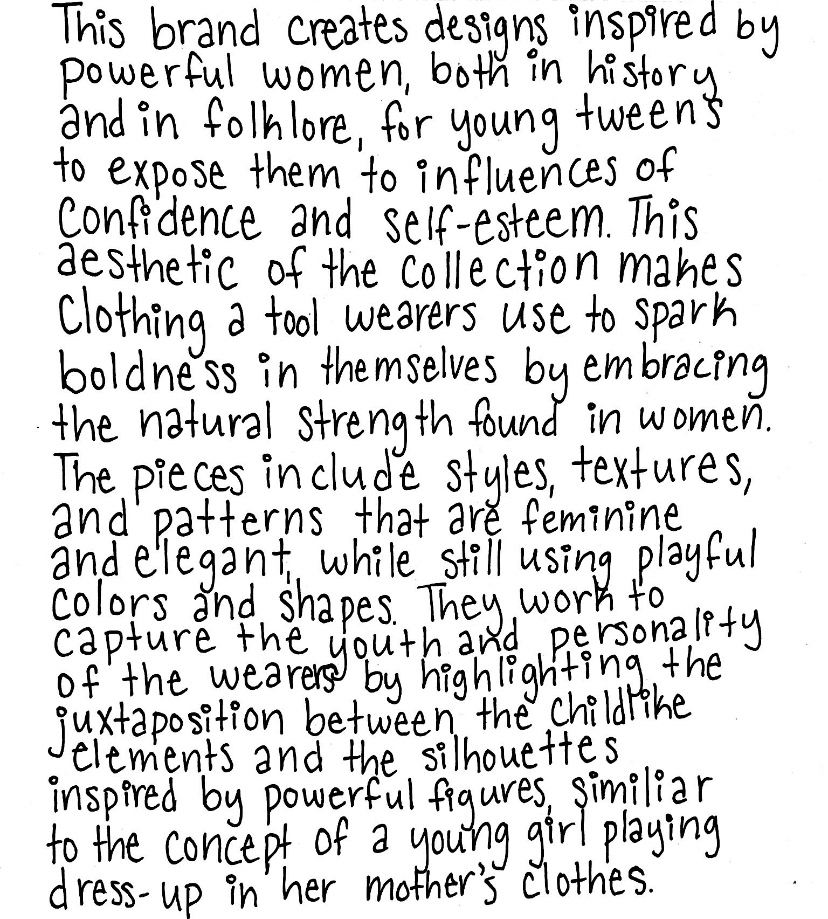 This brand creates designs inspired by
powerful women, both in history
and in folklore, for young tweens
to expose them to influences of
confidence and self-esteem. This
aesthetic of the collection makes
clothing a tool wearers use to spark
boldness in themselves by embracing
the natural strength found in women.
The pieces include styles, textures,
and patterns that are feminine
and elegant, while still using playful
colors and shapes. They work to
capture the youth and personality
of the wearers by highlighting the
juxtaposition between the childlike
elements and the silhouettes
inspired by powerful figures, similiar
to the concept of a young girl playing
dress-up in her mother's clothes.